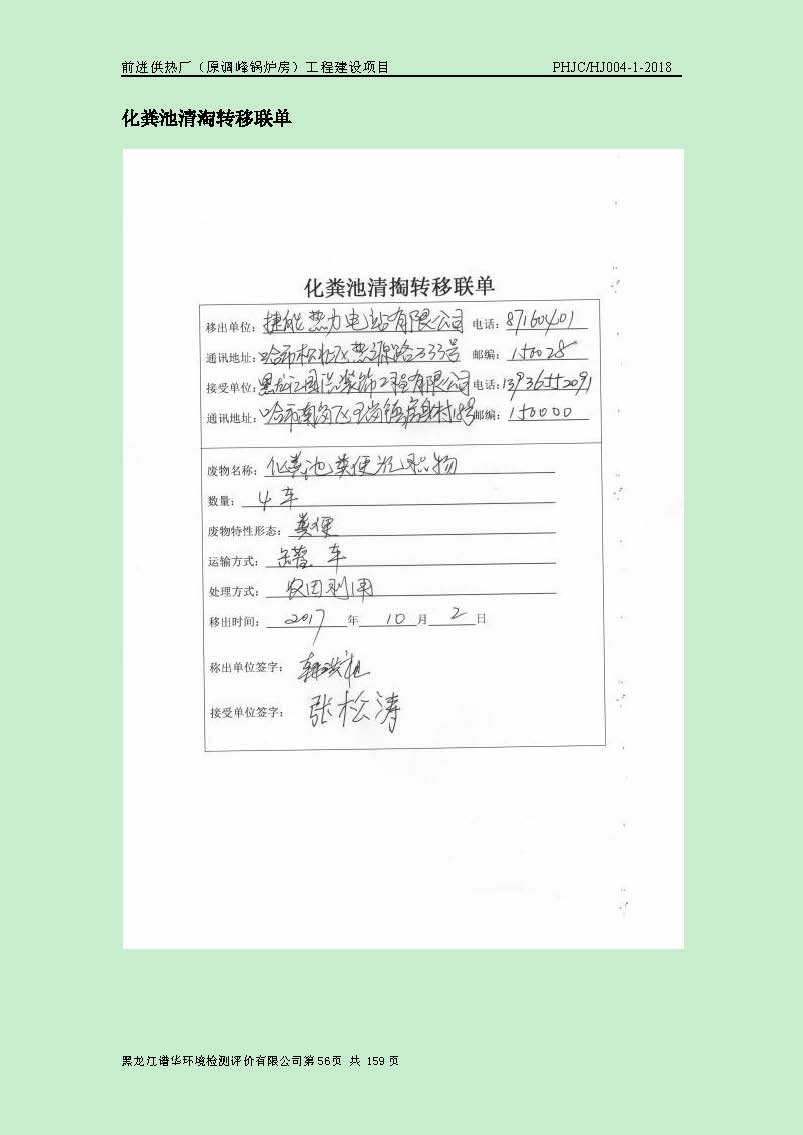 前进供热厂（原调峰锅炉房）工程建设项目 PHJC/HJ004-1-2018
化粪池清淘转移联单
化粪池清掏转移联单
移出单位：捷能热力电站有限公司 电话：87160401
通讯地址：哈市松北区热源路333号 邮编：150028
接受单位：黑龙江国兴装饰工程有限公司 电话：13936552091
通讯地址：哈市南岗区王岗镇 村18号 邮编：150000
废物名称：化粪池粪便 物
数量：4车
废物特性形态：粪便
运输方式：罐车
处理方式：农田利用
移出时间：2017年10月2日
称出单位签字：
接受单位签字：张松涛
黑龙江谱华环境检测评价有限公司第56页 共 159页